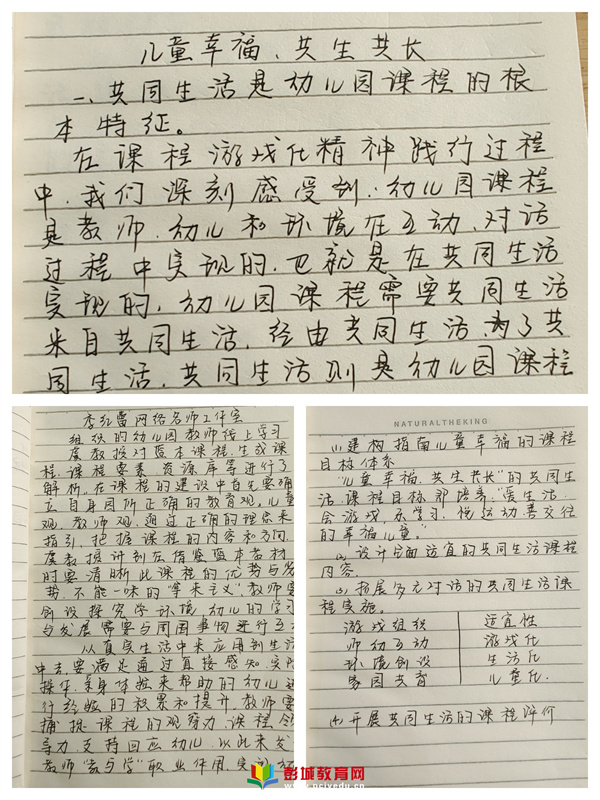 儿童幸福、共生共长
一、共同生活是幼儿园课程的根
本特征。
在课程游戏化精神践行过程
中,我们深刻感受到:幼儿园课程
是教师、幼儿和环境在互动、对话
过程中实现的,也就是在共同生活
实现的,幼儿园课程需要共同生活
来自共同生活,经由共同生活,为了共
同生活,共同生活则是幼儿园课程
李红蕾网络名师工作室
组织的幼儿园教师线上学习
虞教授对蓝本课程、生成课
程、课程要素、资源库等进行了
解析。在课程的建设中首先要确
立自身园所正确的教育观、儿童
观、教师观,通过正确的理念来
指引,把握课程的内容和方向。
虞教授计划在借鉴蓝本教材
时要清晰此课程的优势与劣
势,不能一味的“拿来主义”教师要
创设探究学环境,幼儿的学习
与发展需要与周围事物进行互
从真实生活中来应用到生活
中去,要满足通过直接感知、实际
操作、亲身体验来帮助的幼儿进
行经验的积累和提升,教师要
捕捉课程的观察力、课程领
导力,支持回应幼儿,以此来发
教师“教与学”职业作用,
NATURALTHEKING
(1)建构指南儿童幸福的课程
目标体系
“儿童幸福,共生共长”的共同生
活课程目标即培养:“爱生活、
会游戏、乐学习、悦运动善交往
的幸福儿童。”
(2)设计全面适宜的共同生活课程
内容。
(3)拓展多元对话的共同生活课
程实施。
游戏组织 适宜性
师幼互动 游戏化
环境创设 生活化
家园共育 儿童化.
(4)开展共同生活的课程评价
彭城教育网
www.pcjyedu.cn